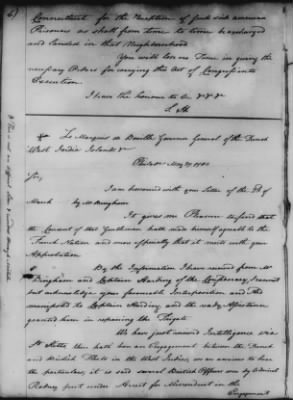 Convenient for the Reception of such sick american
Prisoners as shall from time to time be exchanged
and landed in that Neighbourhood
You will lose no Time in giving the
necessary Orders for carrying this Act of Congress into
Execution
I have the honour to be &c &c
To Marquis de Bouille Governor General of the French
West India Islands &c
Philad. May 1780
Sir,
I am honored with your Letter of the 8th of
March by Mr Bingham
It gives me Pleasure to find that
the Conduct of that Gentleman hath made himself agreeable to the
French Nation and more especially that it meets with your
Approbation
By the Information I have received from Mr
Bingham and Captain Harding of the Confederacy, I cannot
but acknowledge your generous Interposition and
manifested to Captain Harding and the ready Assistance
granted him in repairing the Frigate
We have just received Intelligence via
St that there hath been an Engagement between the French
and British Fleets in the West Indies, we are anxious to hear
the particulars, it is said several British Officers were by Admiral
Rodney put under Arrest for Misconduct in the
Engagement